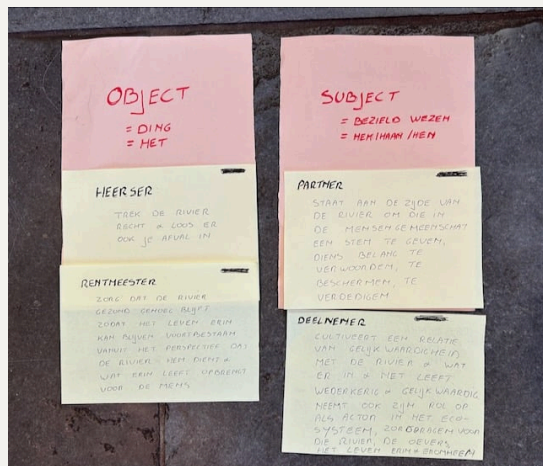 OBJECT
= DING
= HET
HEERSER
TREK DE RIVIER
RECHT & LOOS ER
OOK JE AFVAL IN
RENTMEESTER
ZORG DAT DE RIVIER
GEZOND GENOEG BLIJFT
ZODAT HET LEVEN ERIN
KAN BLIJVEN VOORTBESTAAN
VANUIT HET PERSPECTIEF DAT
DE RIVIER HEM DIENT &
WAT ERIN LEEFT OPBRENGT
VOOR DE MENS
SUBJECT
= BEZIELD WEZEN
= HEM/HAAR/HEN
PARTNER
STAAT AAN DE ZIJDE VAN
DE RIVIER OM DIE IN
DE MENSENGEMEENSCHAP
EEN STEM TE GEVEN,
DIENS BELANG TE
VERWOORDEN, TE
BESCHERMEN, TE
VERDEDIGEN
DEELNEMER
CULTIVEERT EEN RELATIE
VAN GELIJKWAARDIGHEID
MET DE RIVIER & WAT
ER IN & MET LEEFT
WEDERKERIG & GELIJKWAARDIG
NEEMT OOK ZIJN ROL OP
ALS ACTOR IN HET ECO-
SYSTEEM, ZORGDRAGEN VOOR
DIE RIVIER, DE OEVERS
HET LEVEN ERIN & EROMHEEN